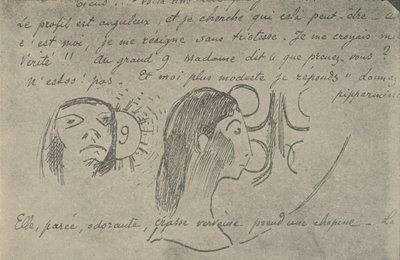 Le profil est anguleux, et je cherche qui celà peut-être - 
c'est moi, je me résigne sans tristesse. Je me croyais
Vérité!! Au grand 9 Madame dit à que prenez-vous?
N'est-ce pas. Et moi plus modeste je réponds "donnez
pippermint
9
Elle, parée, odorante, grasse verveine prend une chopine -